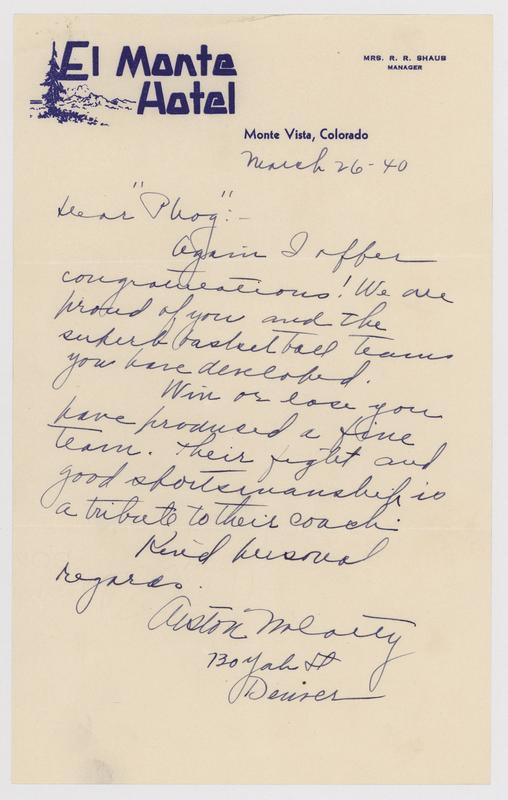 El Monte
Hotel
MRS. R. R. SHAUB
MANAGER
Monte Vista, Colorado
March 26-40
Dear "Phog":-
Again I offer
congratulations! We are
proud of you and the
superb basketball teams
you have developed.
Win or lose you
have produced a fine
team. Their fight and
good sportsmanship is
a tribute to their coach.
Kind personal
regards.
730
Denver